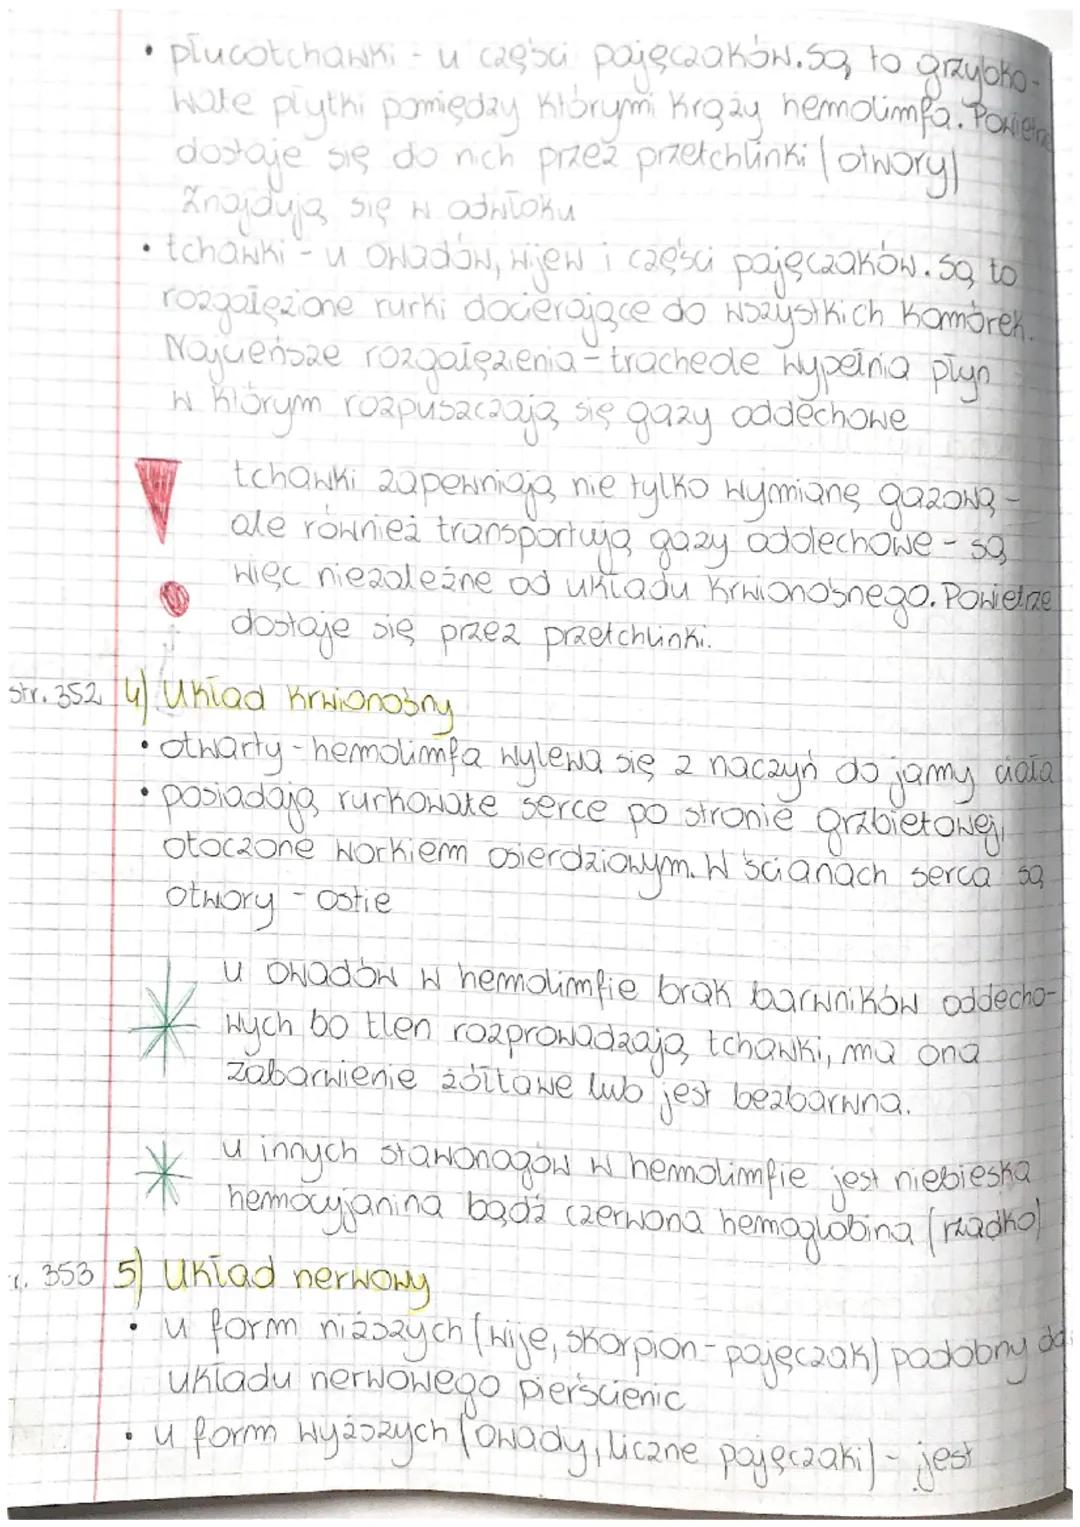 • płucotchawki - u części pajęczaków. Są to grzybko-
wate płytki pomiędzy którymi krąży hemolimfa. Powietrze
dostaje się do nich przez przetchlinki (otwory)
Znajdują się w odwłoku
• tchawki - u owadów, wijew i części pajęczaków. Są to
rozgałęzione rurki docierające do wszystkich komórek.
Najcieńsze rozgałęzienia - tracheole wypełnia płyn
w którym rozpuszczają się gazy oddechowe
tchawki zapewniają nie tylko wymianę gazową -
ale również transportują gazy oddechowe - są
więc niezależne od układu krwionośnego. Powietrze
dostaje się przez przetchlinki.
str. 352 4) Układ krwionośny
• otwarty - hemolimfa wylewa się z naczyń do jamy ciała
• posiadają rurkowate serce po stronie grzbietowej,
otoczone workiem osierdziowym. W ścianach serca są
otwory - ostie
u owadów w hemolimfie brak barwników oddecho-
wych bo tlen rozprowadzają tchawki, ma ona
zabarwienie żółtawe lub jest bezbarwna.
u innych stawonogów w hemolimfie jest niebieska
hemocyjanina bądź czerwona hemoglobina (rzadko)
r. 353 5) Układ nerwowy
• u form niższych (wije, skorpion - pajęczak) podobny do
układu nerwowego pierścienic
• u form wyższych (owady, liczne pajęczaki) - jest